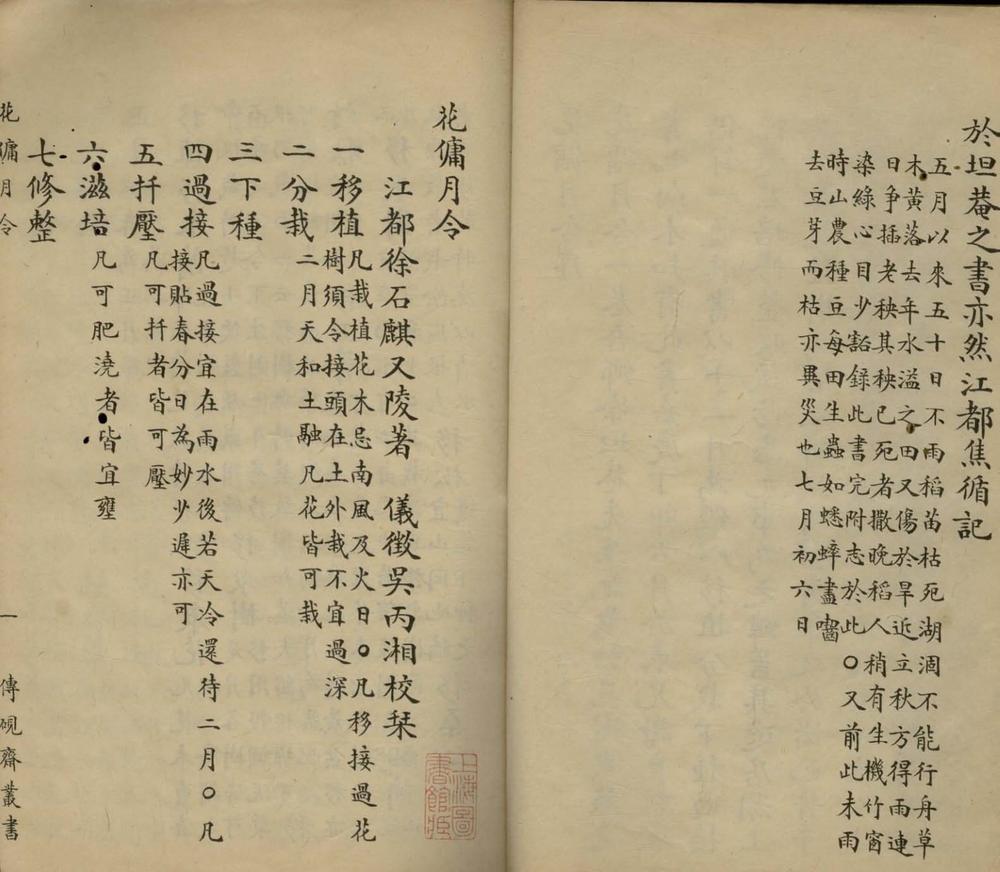 於坦菴之書亦然江都焦循記
五月以來五十日不雨稻苗枯死湖涸不能行舟草
木黃落去年水溢之田又傷於旱近立秋方得雨連
日爭插老秧其秧已死者撒晚稻人稍有生機竹窗
染綠心目少豁錄此書完附志於此〇又前此未雨
時山農種豆每田生蟲如蟋蟀盡嚙
去豆芽而枯亦異災也七月初六日
花傭月令
江都徐石麒又陵著 儀徵吳丙湘校栞
一移植 凡栽植花木忌南風及火日〇凡移接過花
樹須令接頭在土外栽不宜過深
二分栽 二月天和土融凡花皆可栽
三下種
四過接 凡過接宜在雨水後若天冷還待二月〇凡
接貼春分日為妙少遲亦可
五扦壓 凡可扦者皆可壓
六滋培 凡可肥澆者皆宜壅
七修整
花傭月令 一 傳硯齋叢書
上海圖書館藏